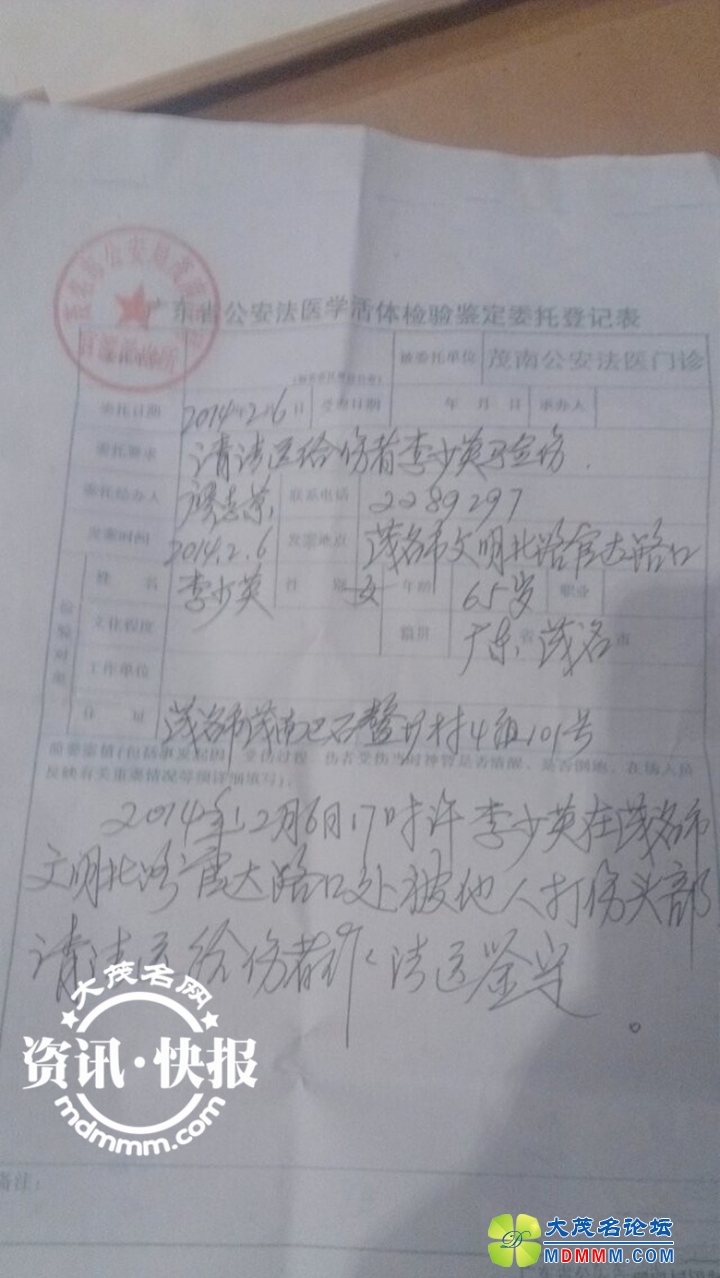 广东省公安法医学活体检验鉴定委托登记表
被委托单位 茂南公安法医门诊
委托日期 2014年2月6日 受理日期 年 月 日 承办人
委托要求 请法医给伤者李少英验伤.
委托经办人 联系电话 2289297
发案时间 2014.2.6 发案地点 茂名市文明北路官大路口
姓 名 李少英 性 别 女 年龄 65岁 职业
检验对象
文化程度 籍贯 广东省茂名市
工作单位
住 址 茂名市茂南区石鳌圹村4组101号
简要案情(包括事发起因、受伤过程、伤者受伤当时神智是否清醒、是否倒地、在场人员
反映有关重要情况等须详细填写):
2014年12月6日17时许李少英在茂名市
文明北路官大路口处被他人打伤头部
请法医给伤者作法医鉴定。
大茂名网
资讯·快报
mdmmm.com
备注:
大茂名论坛
MDMMM.COM